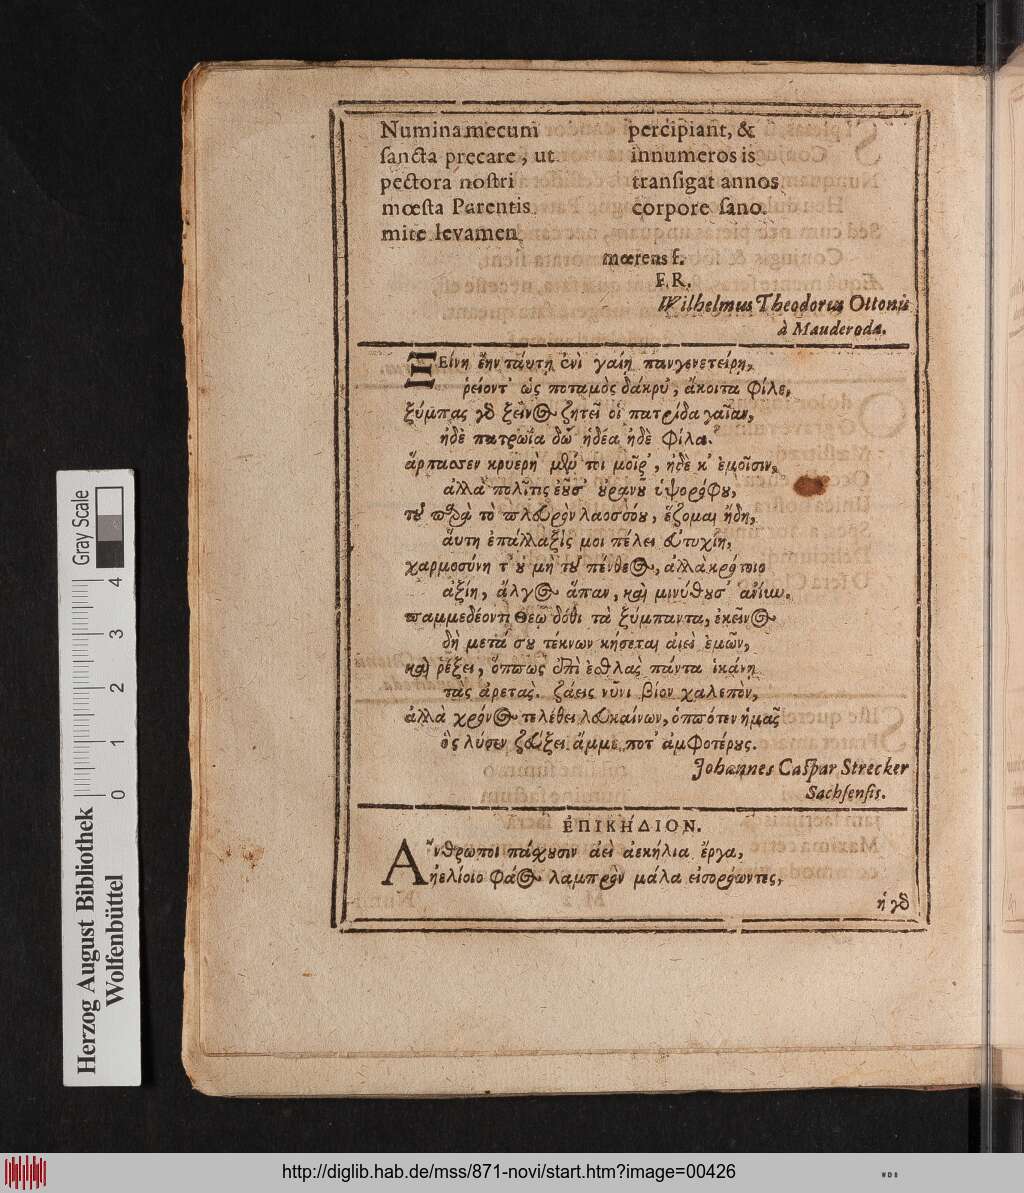 Numina mecum
sancta precare, ut
pectora nostri
mœsta Parentis
mite levamen
percipiant, &
innumeros is
transigat annos
corpore sano.
mœrens f.
F. R.
Wilhelmus Theodorus Ottonis
à Mauderoda.
ΞΕίνη ἔην ταύτῃ ἐνὶ γαίῃ παγγενετείρῃ,
ῥείοντ' ὡς ποταμὸς δάκρυ', ἄκοιτα φίλε,
ξύμπας γὰρ ξεῖνος ζητεῖ οἷ πατρίδα γαῖαν,
ἠδὲ πατρῷα δῶ ἡδέα ἠδὲ φίλα.
ἅρπασεν κρυερὴ μέν τοι μοῖρ', ἠδὲ κ' ἐμοῖσιν,
ἀλλὰ πολῖτις ἐοῦσ' οὐρανοῦ ὑψορόφου,
τοῦ παρὰ τὸ πλευρὸν λαοσσόου, ἕζομαι ἤδη,
αὕτη ἐπάλλαξίς μοι πέλει εὐτυχίη,
χαρμοσύνη τ' οὐ μὴ τοῦ πένθεος, ἀλλὰ κρότοιο
ἀξίη, ἄλγος ἅπαν, καὶ μινύθουσ' ἀνίην.
παμμεδέοντι Θεῷ δόθι τὰ ξύμπαντα, ἐκεῖνος
δὴ μετά σου τέκνων κήσεται αἰεὶ ἐμῶν,
καὶ ῥέξει, ὅππως ἐπὶ ἐσθλὰς πάντα ἱκάνῃ
τὰς ἀρετάς. ζάεις νῦνι βίον χαλεπὸν,
ἀλλὰ χρόνος τελέθει λευκαίνων, ὁππότεν ἡμᾶς
ὃς λύσεν ζεύξει ἄμμε ποτ' ἀμφοτέρους.
Johannes Caspar Strecker
Sachsensis.
ἘΠΙΚΗΔΙΟΝ.
Ἄνθρωποι πάσχουσιν ἀεὶ ἀεκήλια ἔργα,
ἠελίοιο φάος λαμπρὸν μάλα εἰσορόωντες,
ἡ γὰρ
Gray Scale
0 1 2 3 4
Herzog August Bibliothek
Wolfenbüttel
http://diglib.hab.de/mss/871-novi/start.htm?image=00426
WDB